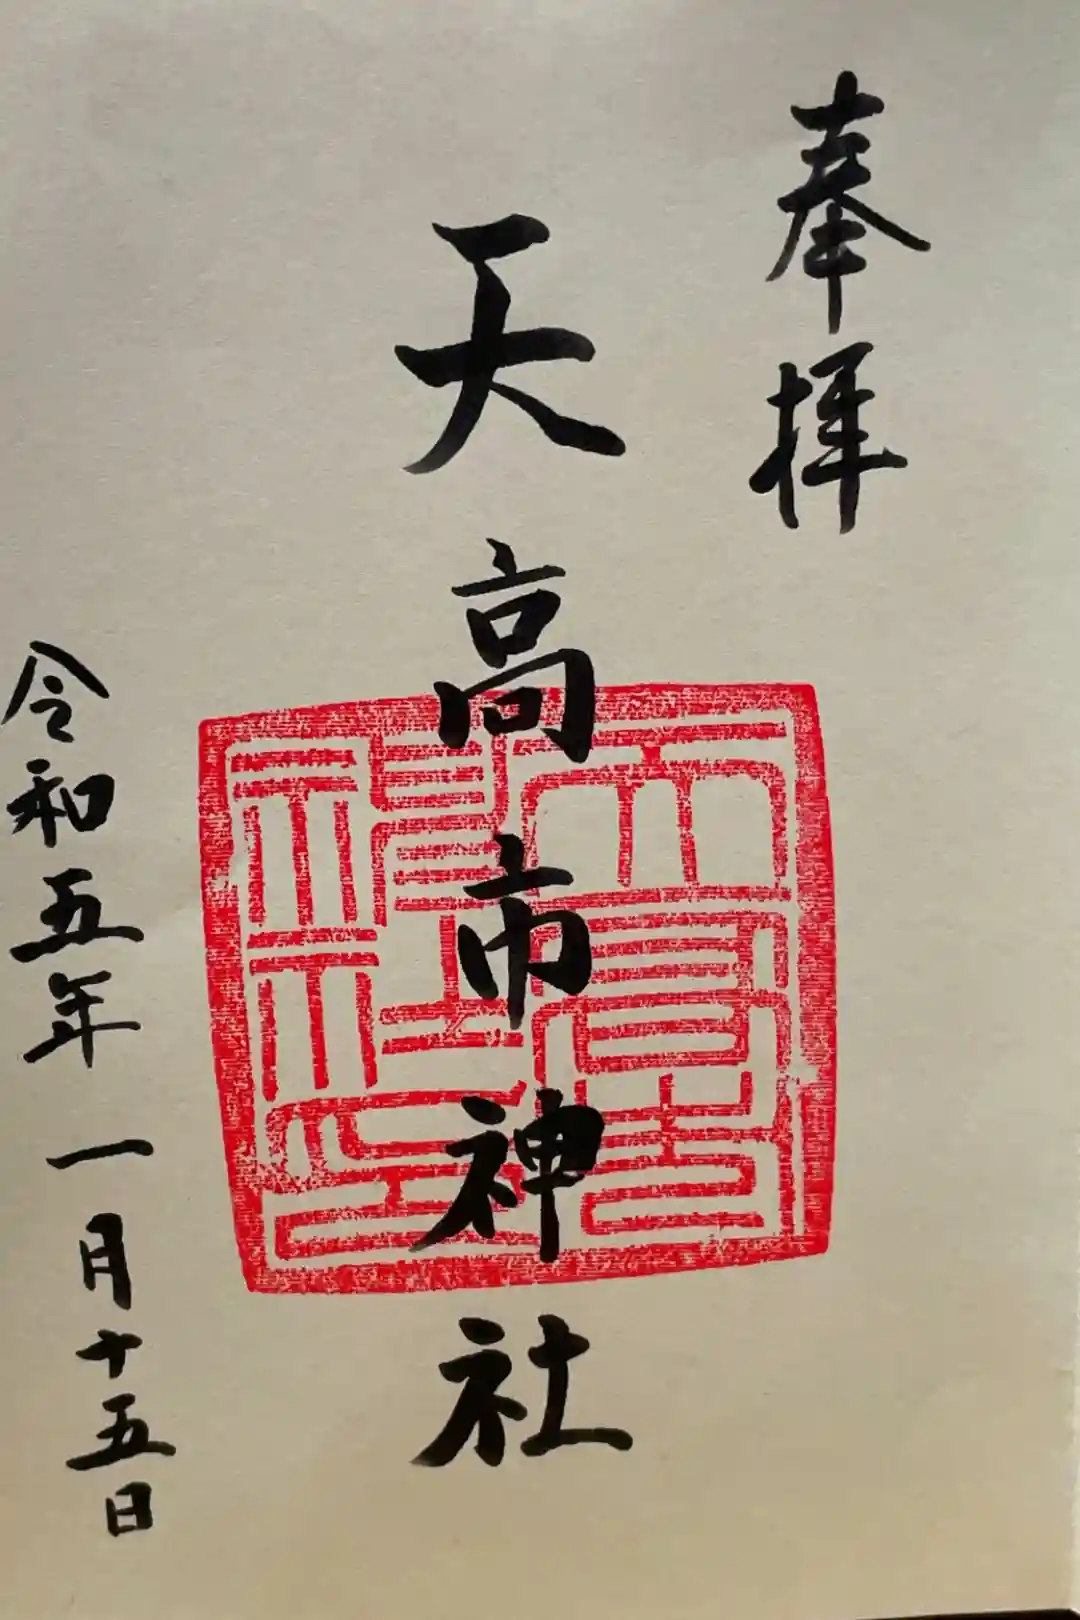 奉拝
天高市神社
令和五年 一月十五日
天高市神社印